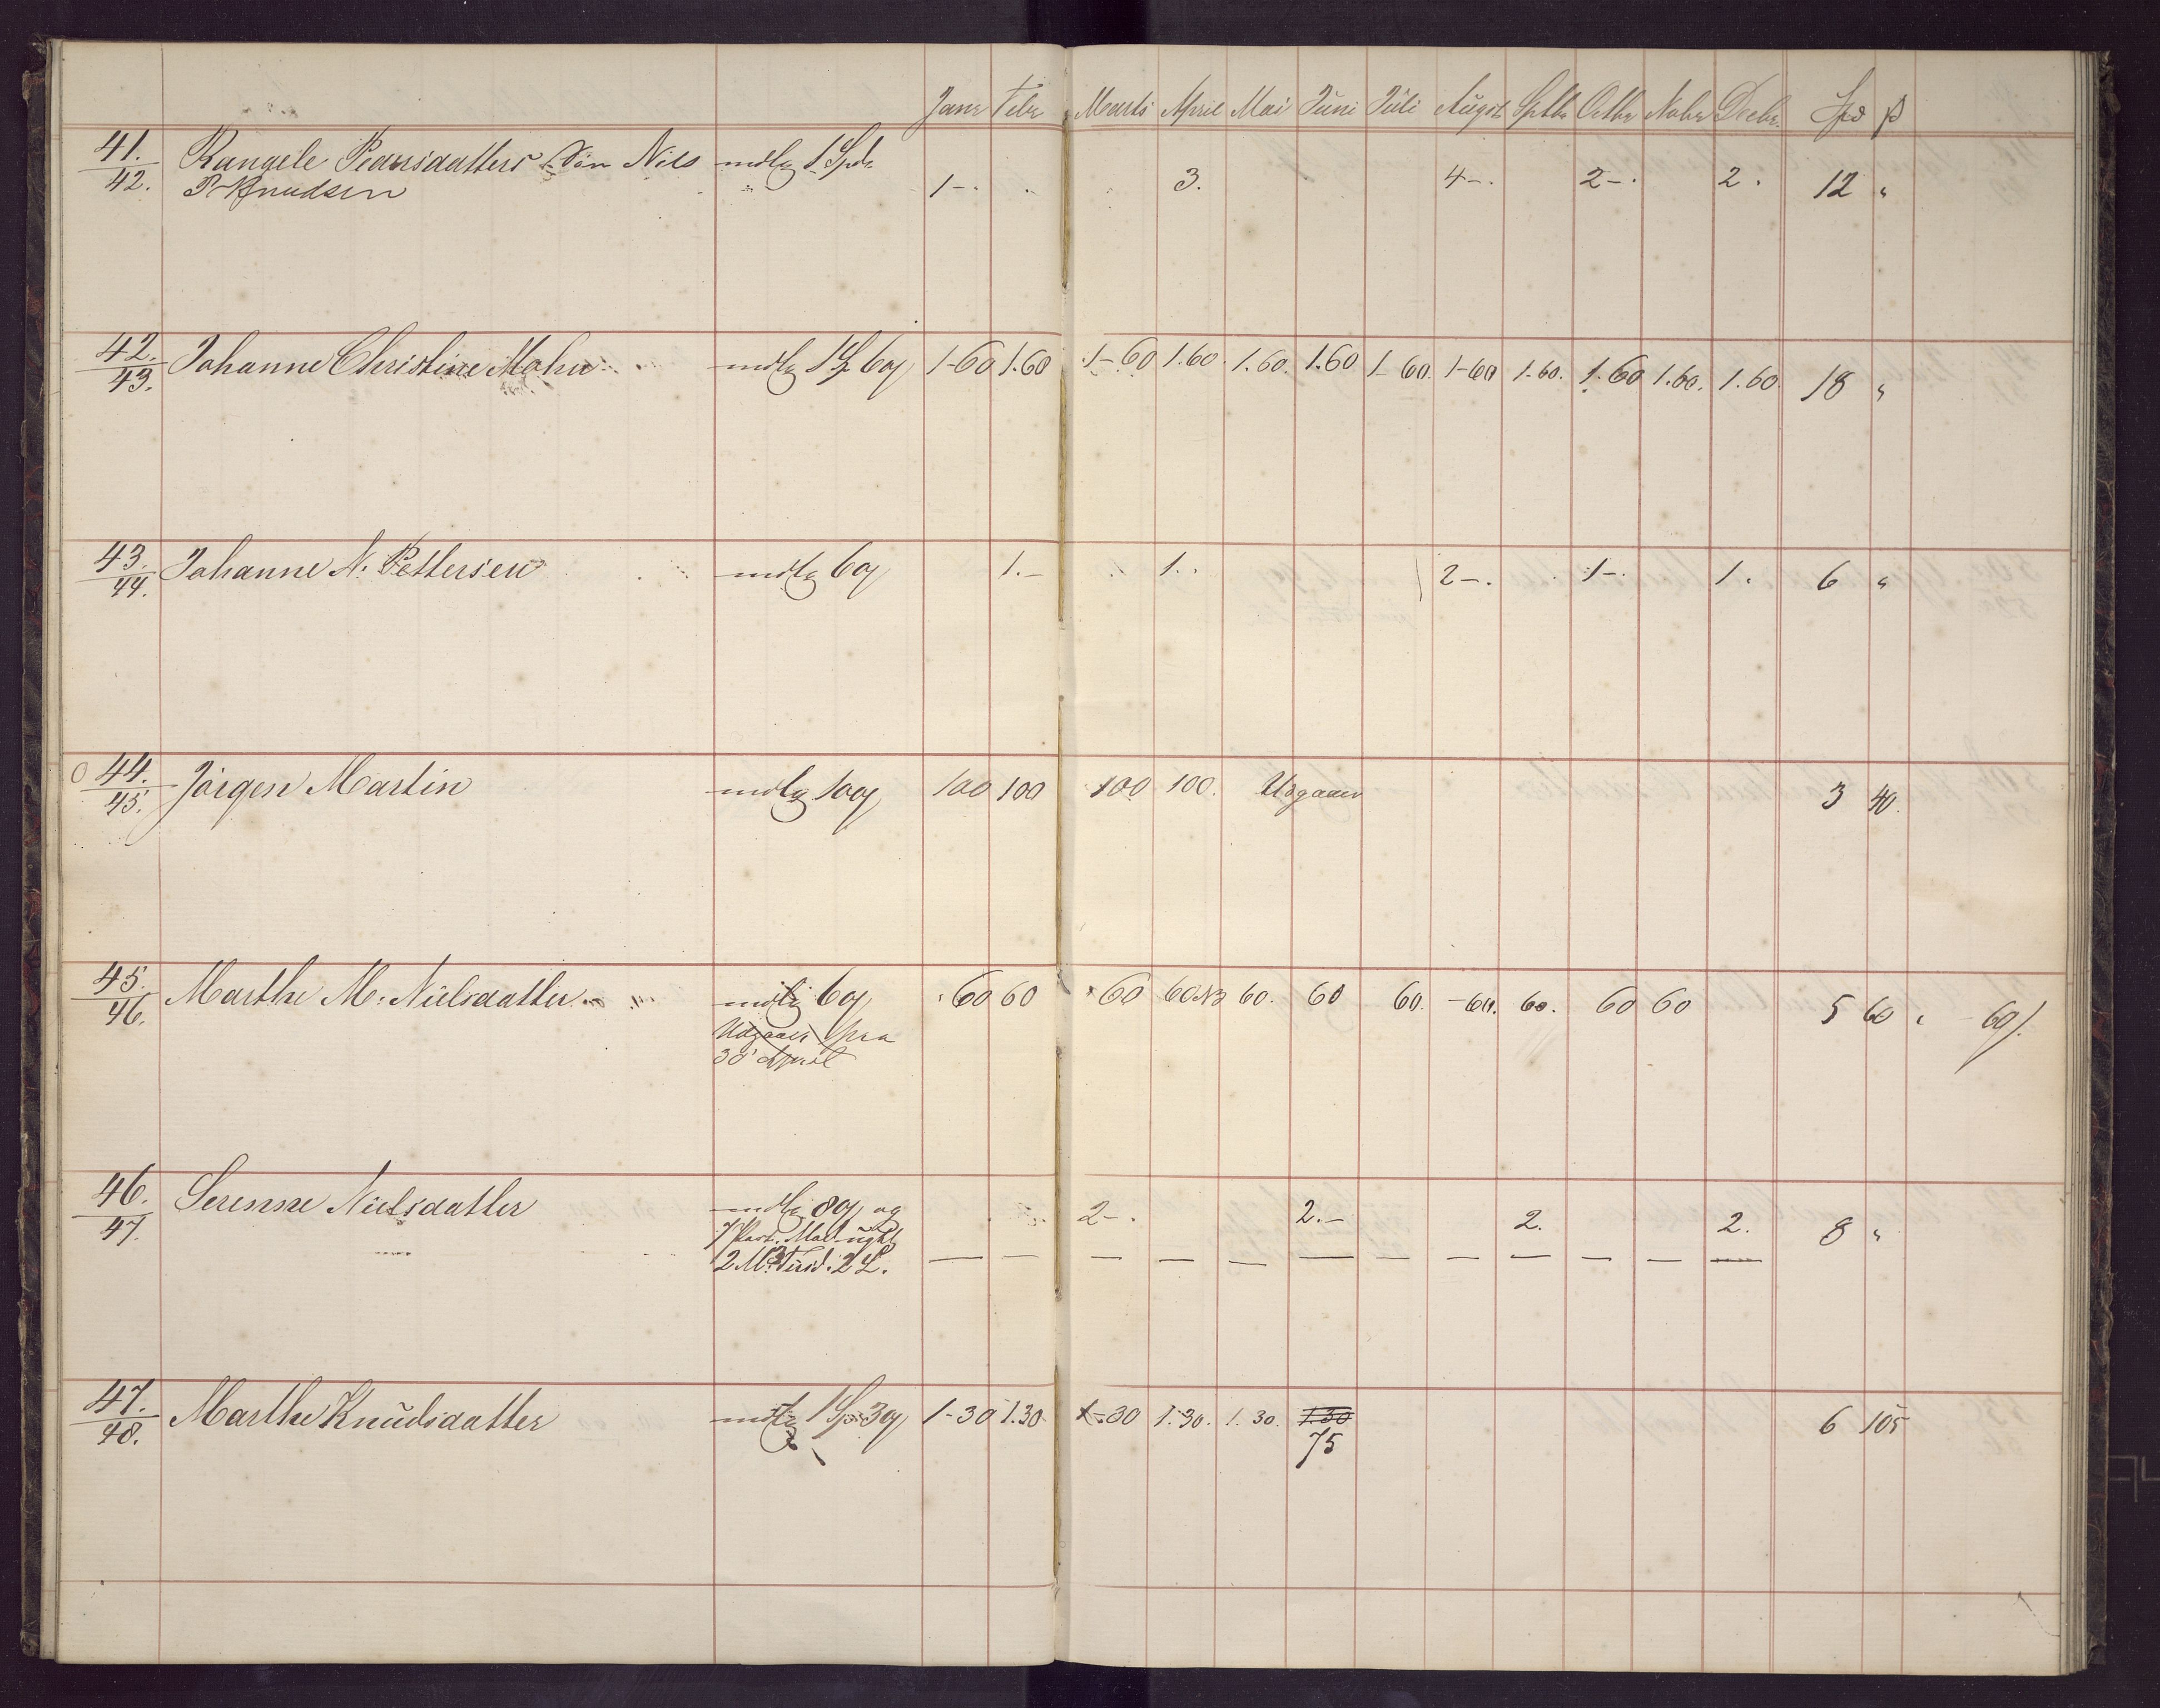 Janr Febr Marts April Mai Juni Juli August Septbr Octbr Novbr Decbr. Spd ß
41. Rangele Pedersdatters Søn Nils mdlg 1 Spdr
42. P. Knudsen 1-. 3. 4-. 2-. 2. 12 "
42. Johanne Christine Mohn mdlg 1 S. 60ß 1-60 1.60 1-60 1.60. 1.60. 1.60 1-60. 1-60 1-60. 1.60 1.60. 1.60. 18 "
43.
43. Johanne N. Pettersen mdlg 60ß 1.- 1.. 2-. 1-. 1. 6 "
44.
O 44. Jørgen Martin mdlg 100ß 100 100 100 100. Udgaaer 3 40.
45.
45. Marthe M. Nielsdatter mdlg 60ß 60 60 60 60 NB 60. 60 60. -60. 60. 60 60 5 60 " 60ß.
46. Udgaaer fra
30' April
46. Serenne Nielsdatter mdlg 80ß og 2-. 2.- 2. 2. 8 "
47. 7 Part. Mad ugtl
2 M. 3 Tirsd. 2 L. — — — — — — — — — — — —
47. Marthe Knudsdatter mdlg 1 Spd 30ß 1-30 1.30 1-30 1.30. 1.30. 1.30 6 105
48. 75